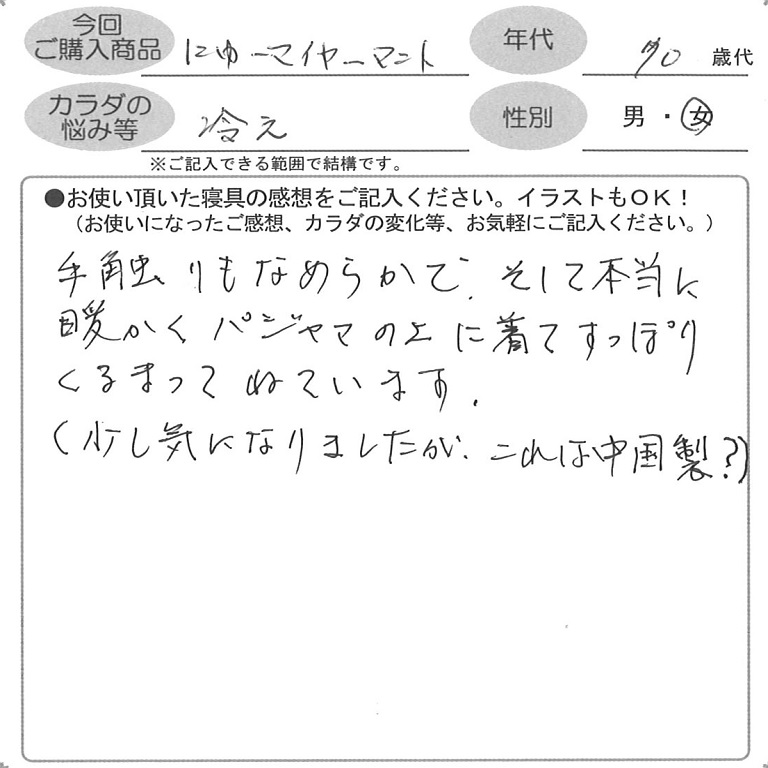 今回
ご購入商品
にゅーマイヤーマント
年代
70
歳代
カラダの
悩み等
冷え
性別
男・女
※ご記入できる範囲で結構です。
●お使い頂いた寝具の感想をご記入ください。イラストもOK!
(お使いになったご感想、カラダの変化等、お気軽にご記入ください。)
手触りもなめらかで、そして本当に
暖かく パジャマの上に着てすっぽり
くるまってねています.
(少し気になりましたが、これは中国製?)